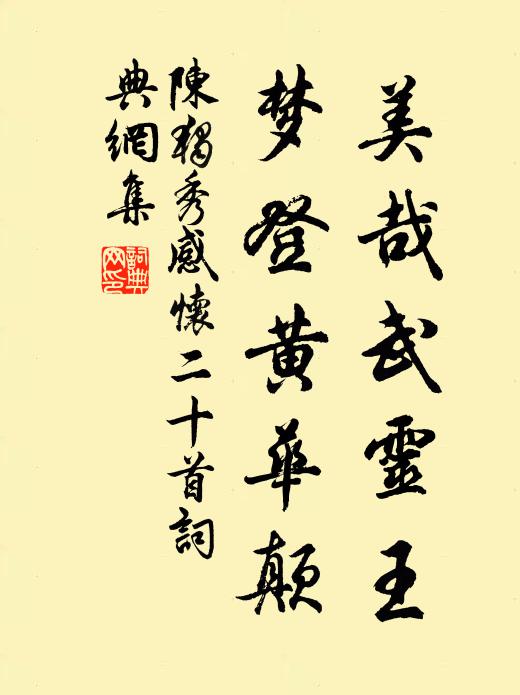 美哉武靈王
梦登黄華顛
陳獨秀感懷二十首詞
典網集
詞典
网印